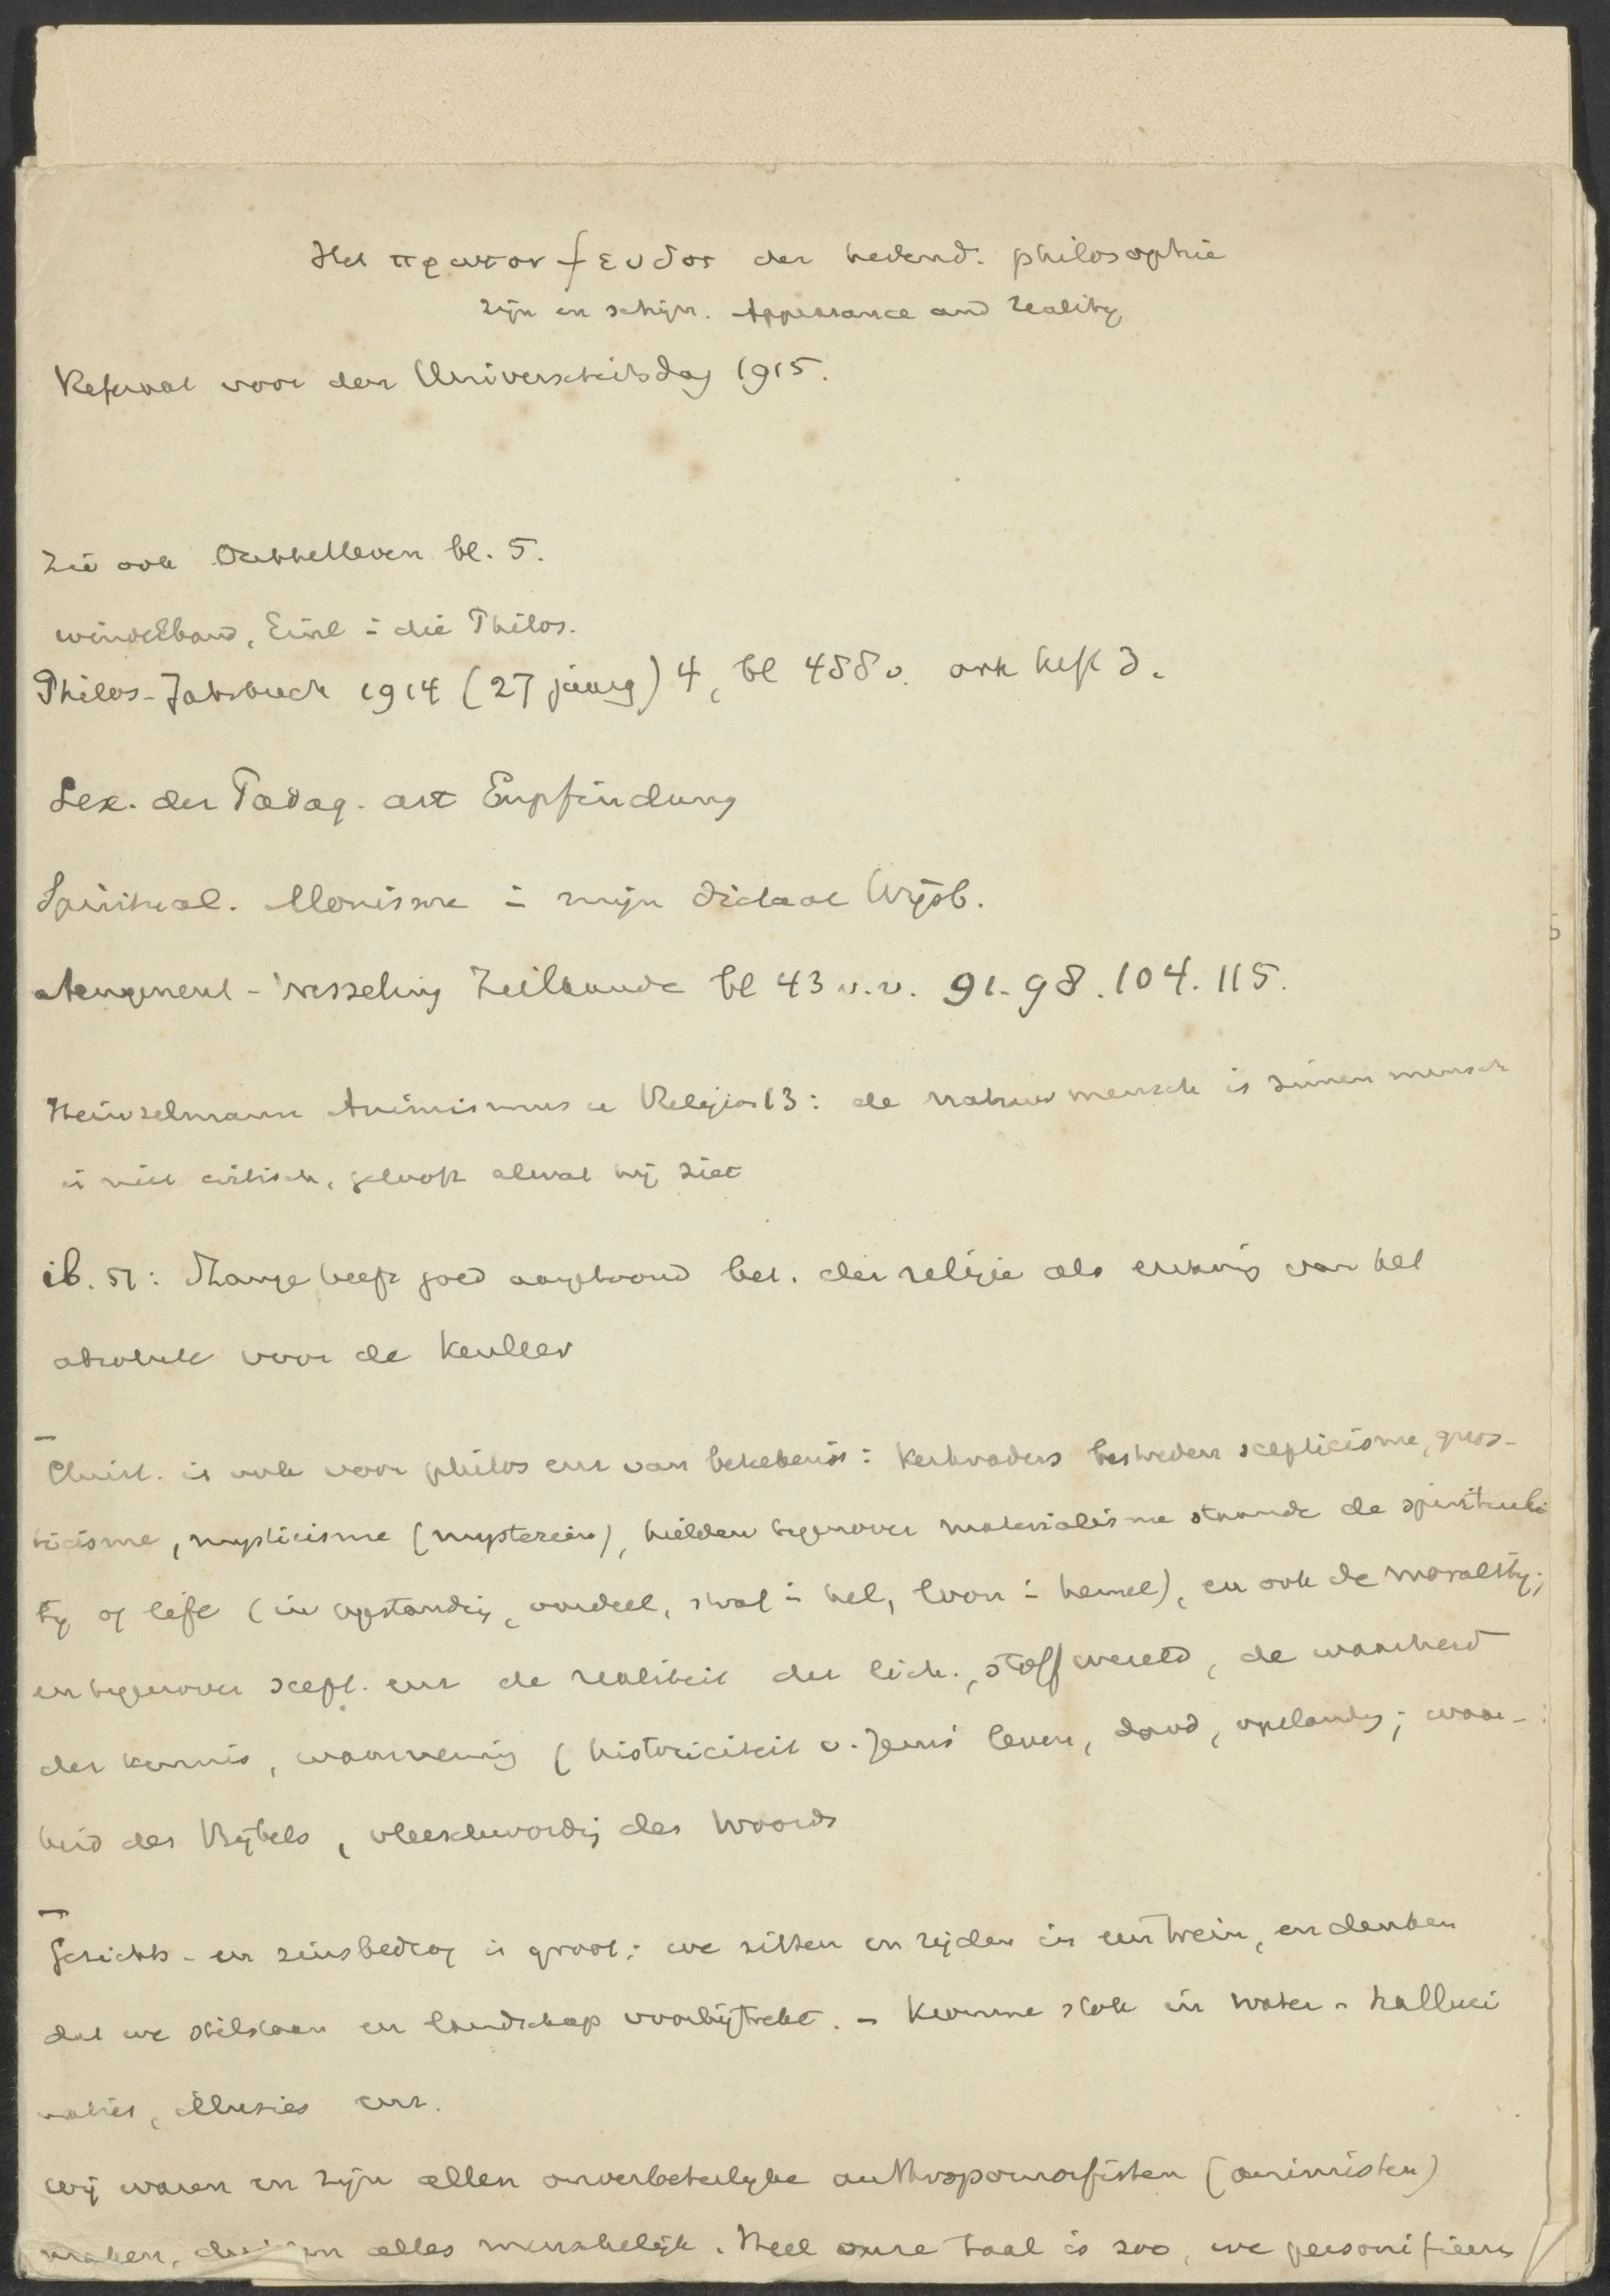 Het πρωτον ψευδος der hedend. philosophie
Zijn en schijn. Appearance and reality
Referaat voor den Universiteitsdag 1915.
Zie ook Dubbelleven bl. 5.
Windelband, Einl i die Philos.
Philos. Jahrbuch 1914 (27 jaarg) 4, bl 488 v. ook heft 3.
Lex. der Pädag. art Empfindung
Spiritual. Monisme i mijn dictaat Wijsb.
Aengenent - Wesseling Zielkunde bl 43 v.v. 91. 98. 104. 115.
Heinzelmann Animismus u Religion 13: de natuurmensch is zinnenmensch
is niet critisch, gelooft alwat hij ziet
ib. 51: heeft goed aangetoond bet. der religie als erkennig van het
absolute voor de
Christ. is ook voor philos enz van beteekenis: kerkvaders bestreden scepticisme, gnos-
ticisme, mysticisme (mysteriën), hielden tegenover materialisme staande de spirituali
tg of (in opstandig, oordeel, straf i hel, loon i hemel), en ook de moraliteit;
en tegenover scept. enz de realiteit der lich., stoff wereld, de waarheid
der kennis, waarnemig (historiciteit v. Jezus' leven, dood, opstandig; waar-
heid des Bijbels, vleeschwordig des Woords
Gezichts- en zinsbedrog is groot: we zitten en rijden in een trein, en denken
dat we stilstaan en landschap voorbijtrekt. - Kromme stok in water - halluci
naties, illusies enz.
Wij waren en zijn allen onverbeterlijke anthropomorfisten (animisten)
maken, alles menschelijk. Heel onze taal is zoo, we personifieeren